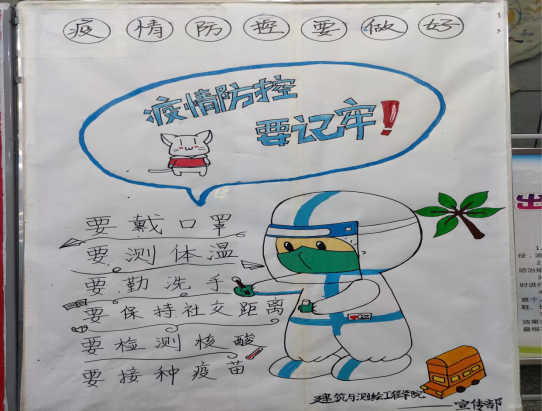 疫情防控要做好
疫情防控
要记牢！
要戴口罩
要测体温
要勤洗手
要保持社交距离
要检测核酸
要接种疫苗
建筑与测绘工程学院
宣传部